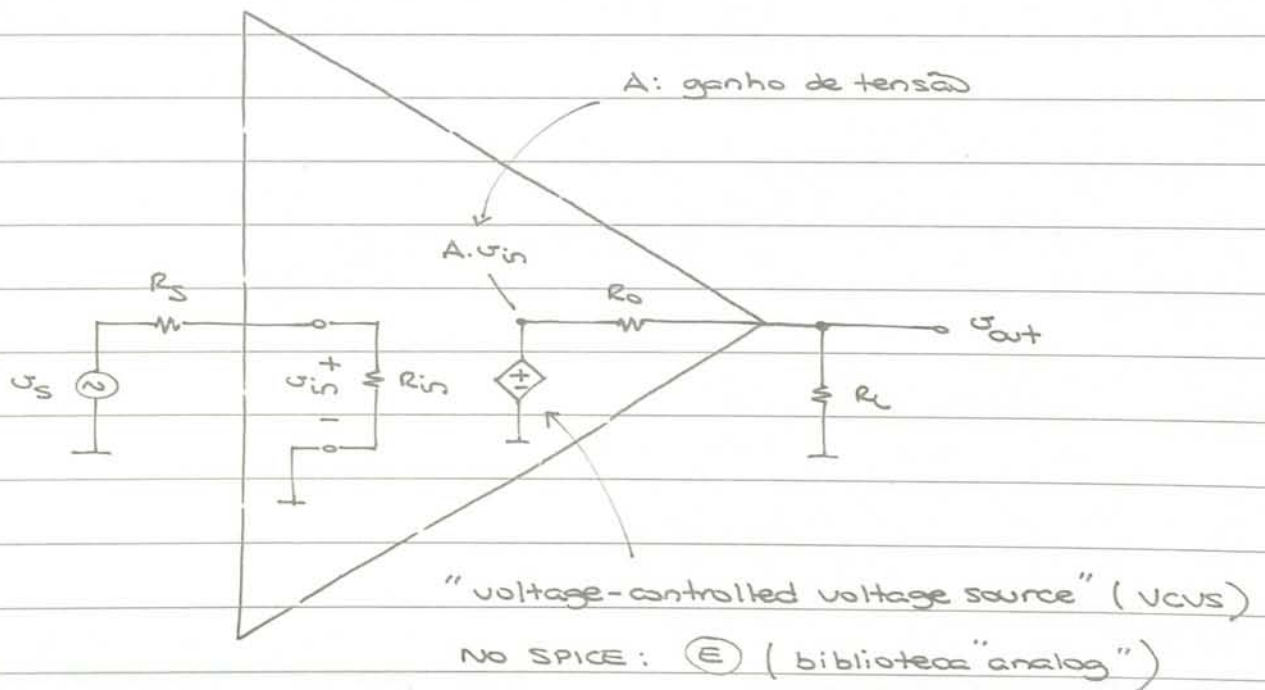 A: ganho de tensão
A.vin
Rs
Ro
vout
vs
+
vin
-
Rin
+-
RL
"voltage-controlled voltage source" (VCVS)
NO SPICE: E (biblioteca "analog")